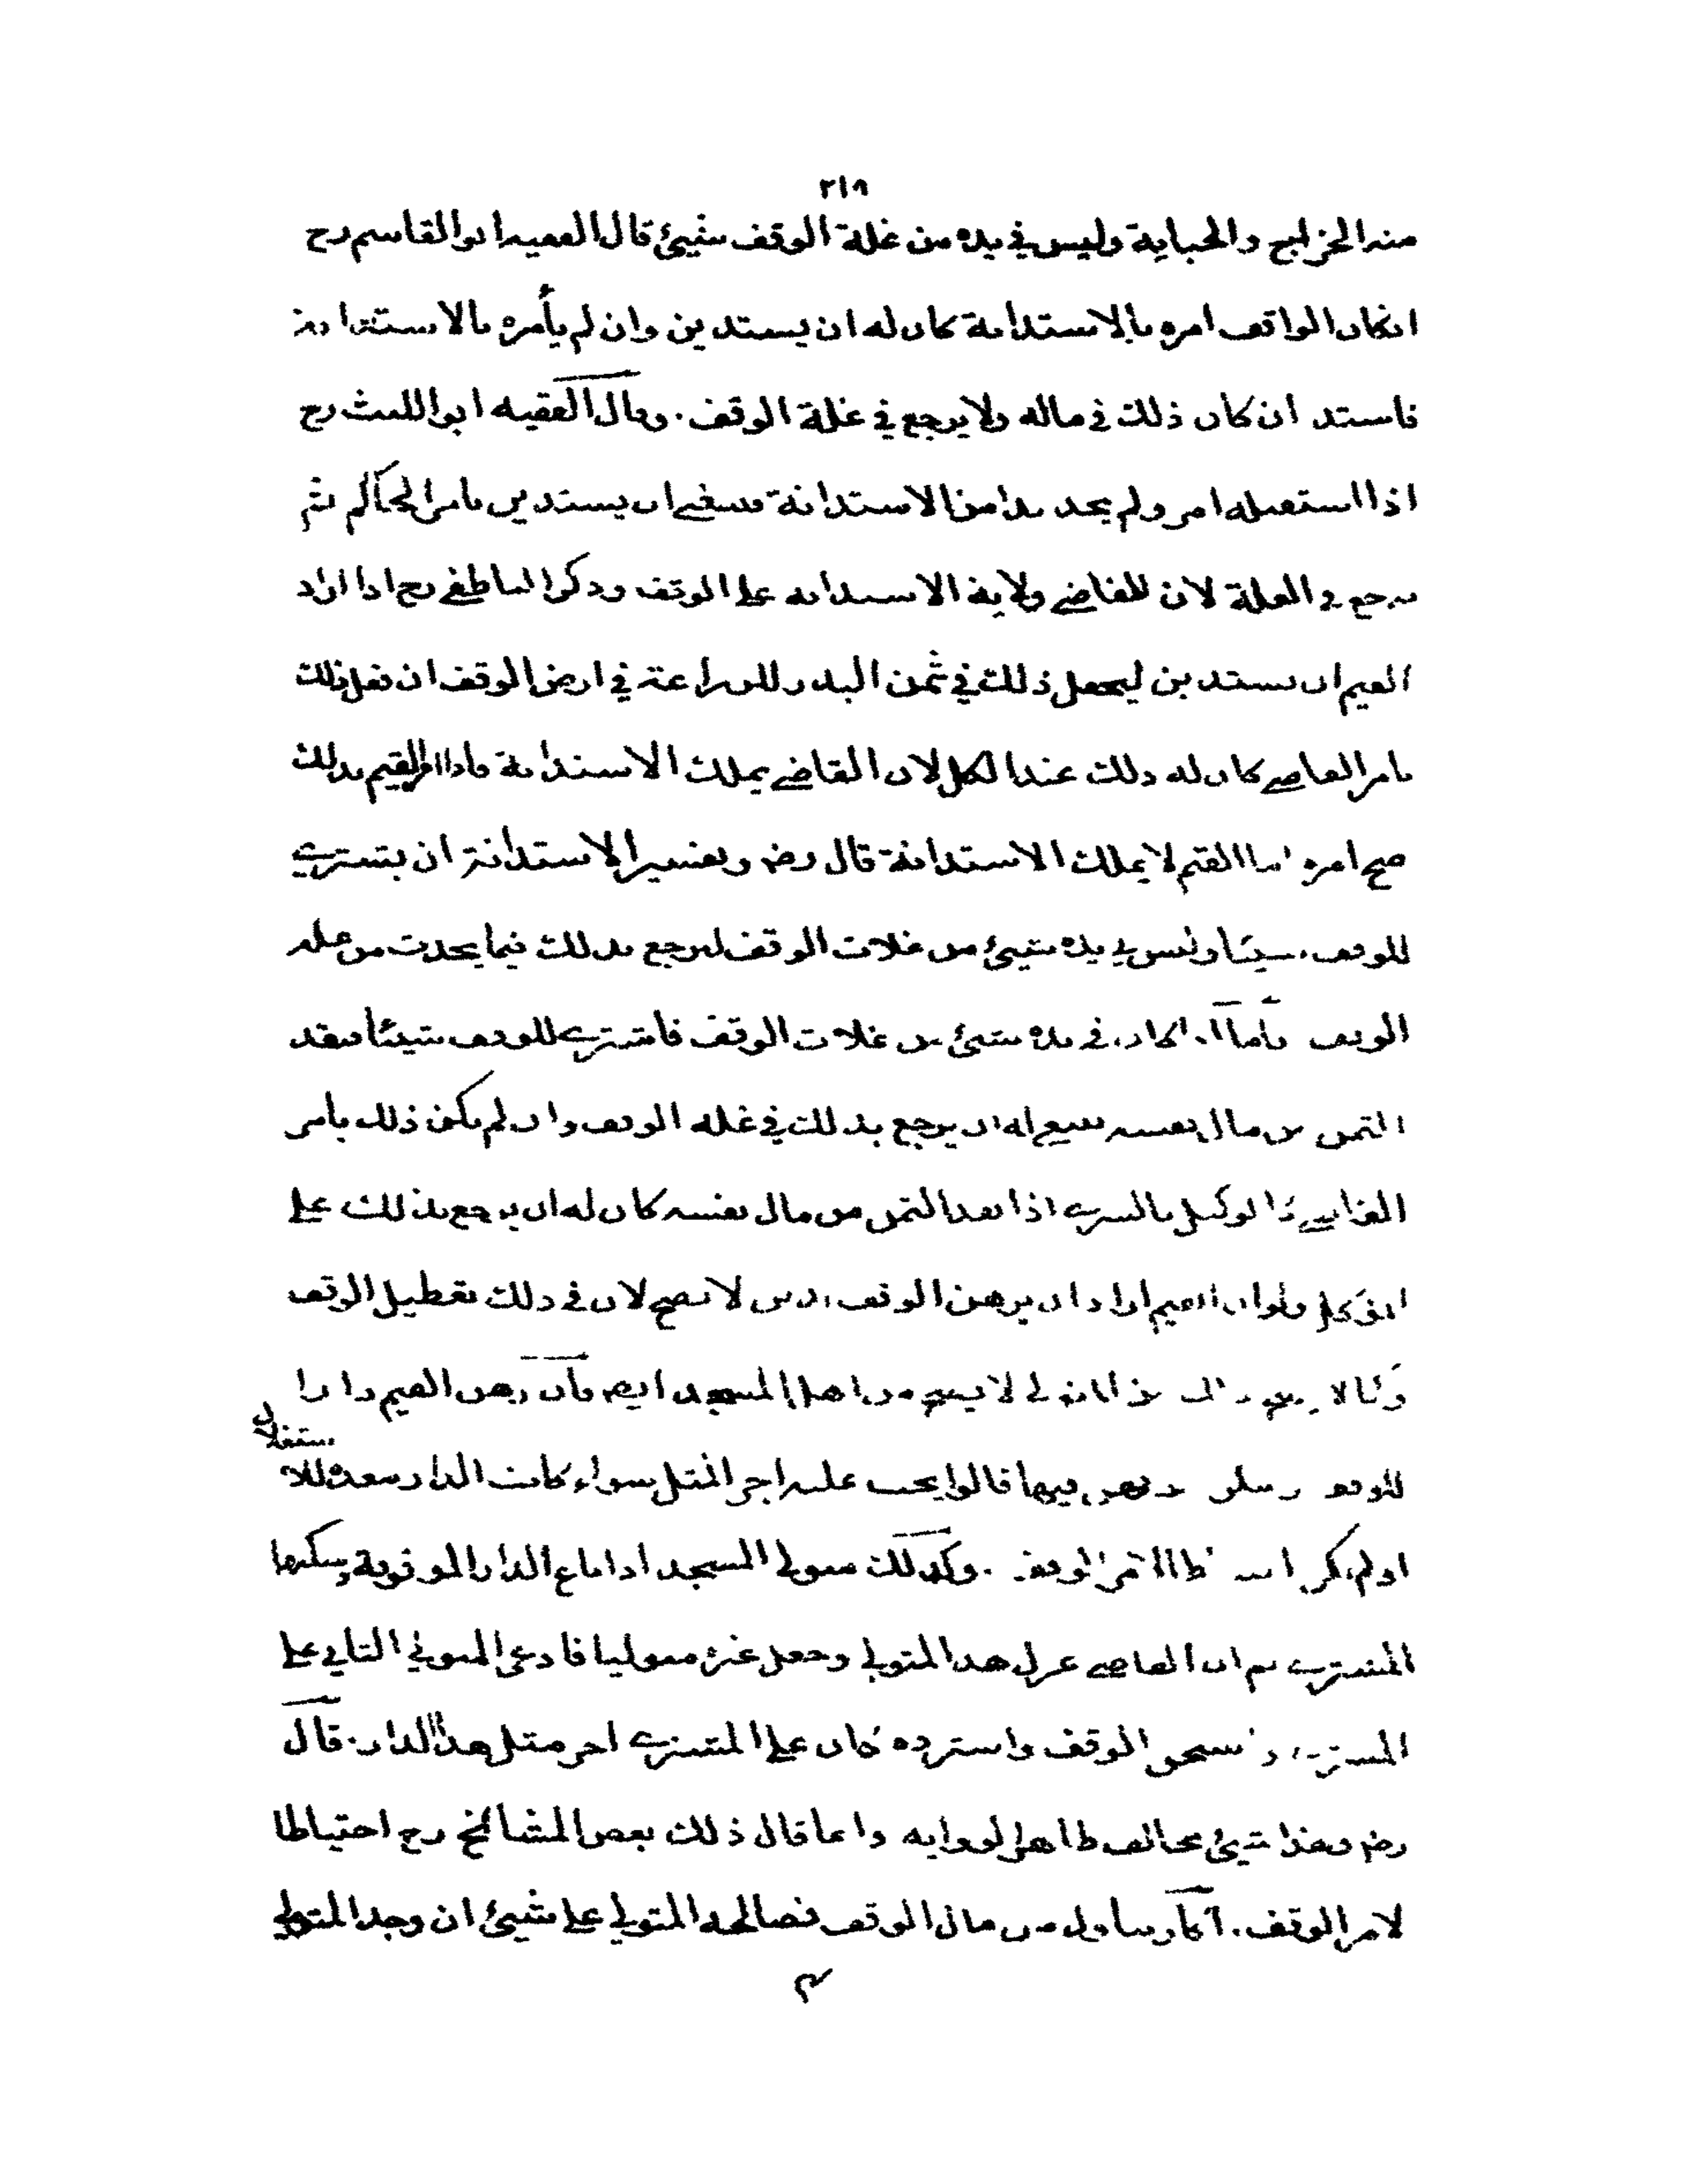 ٢١٩
منه الخراج والجباية وليس في يده من غلة الوقف شيئ قال الفقيه ابو القاسم رح
ان كان الواقف امره بالاستدانة كان له ان يستدين وان لم يأمره بالاستدانة
فاستدان كان ذلك في ماله ولا يرجع في غلة الوقف. وقال الفقيه ابو الليث رح
اذا استقبله امر ولم يجد بدا من الاستدانة فينبغي ان يستدين بامر الحاكم ثم
يرجع في الغلة لان للقاضي ولاية الاستدانه على الوقف وذكر الناطفي رح اذا اراد
القيم ان يستدين ليجعل ذلك في ثمن البذر للزراعة في ارض الوقف ان فعل ذلك
بامر القاضي كان له ذلك عند الكل لان القاضي يملك الاستدانة فاذا امر القيم بذلك
صح امره اما القيم لا يملك الاستدانة قال رض وتفسير الاستدانة ان يشتري
للوقف شيئا وليس في يده شيئ من غلات الوقف ليرجع بذلك فيما يحدث من غله
الوقف فاما اذا كان في يده شيئ من غلات الوقف فاشترى للوقف شيئا ونقد
الثمن من مال نفسه ينبغي له ان يرجع بذلك في غله الوقف وان لم يكن ذلك بامر
القاضي كالوكيل بالشرى اذا نقد الثمن من مال نفسه كان له ان يرجع بذلك على
الموكل ولو ان القيم اراد ان يرهن الوقف بدين لا يصح لان في ذلك تعطيل الوقف
وكما لا يصح ذلك من المتولي لا يصح من اهل المسجد ايضا فان رهن القيم دارا
للوقف وسكن المرتهن فيها قالوا يجب عليه اجر المثل سواء كانت الدار معدة للاستغلال
او لم يكن نظرا لامر الوقف. وكذلك متولي المسجد اذا باع الدار الموقوفة وسكنها
المشتري ثم ان القاضي عزل هذا المتولي وجعل غيره متوليا فادعى المتولي الثاني على
المشتري واستحق الوقف واسترده كان على المشتري اجر مثل هذا الدار. قال
رض وهذا شيئ يخالف ظاهر الرواية وانما قال ذلك بعض المشائخ رح احتياطا
لامر الوقف. اكار تناول من مال الوقف فصالحه المتولي على شيئ ان وجد المتولي